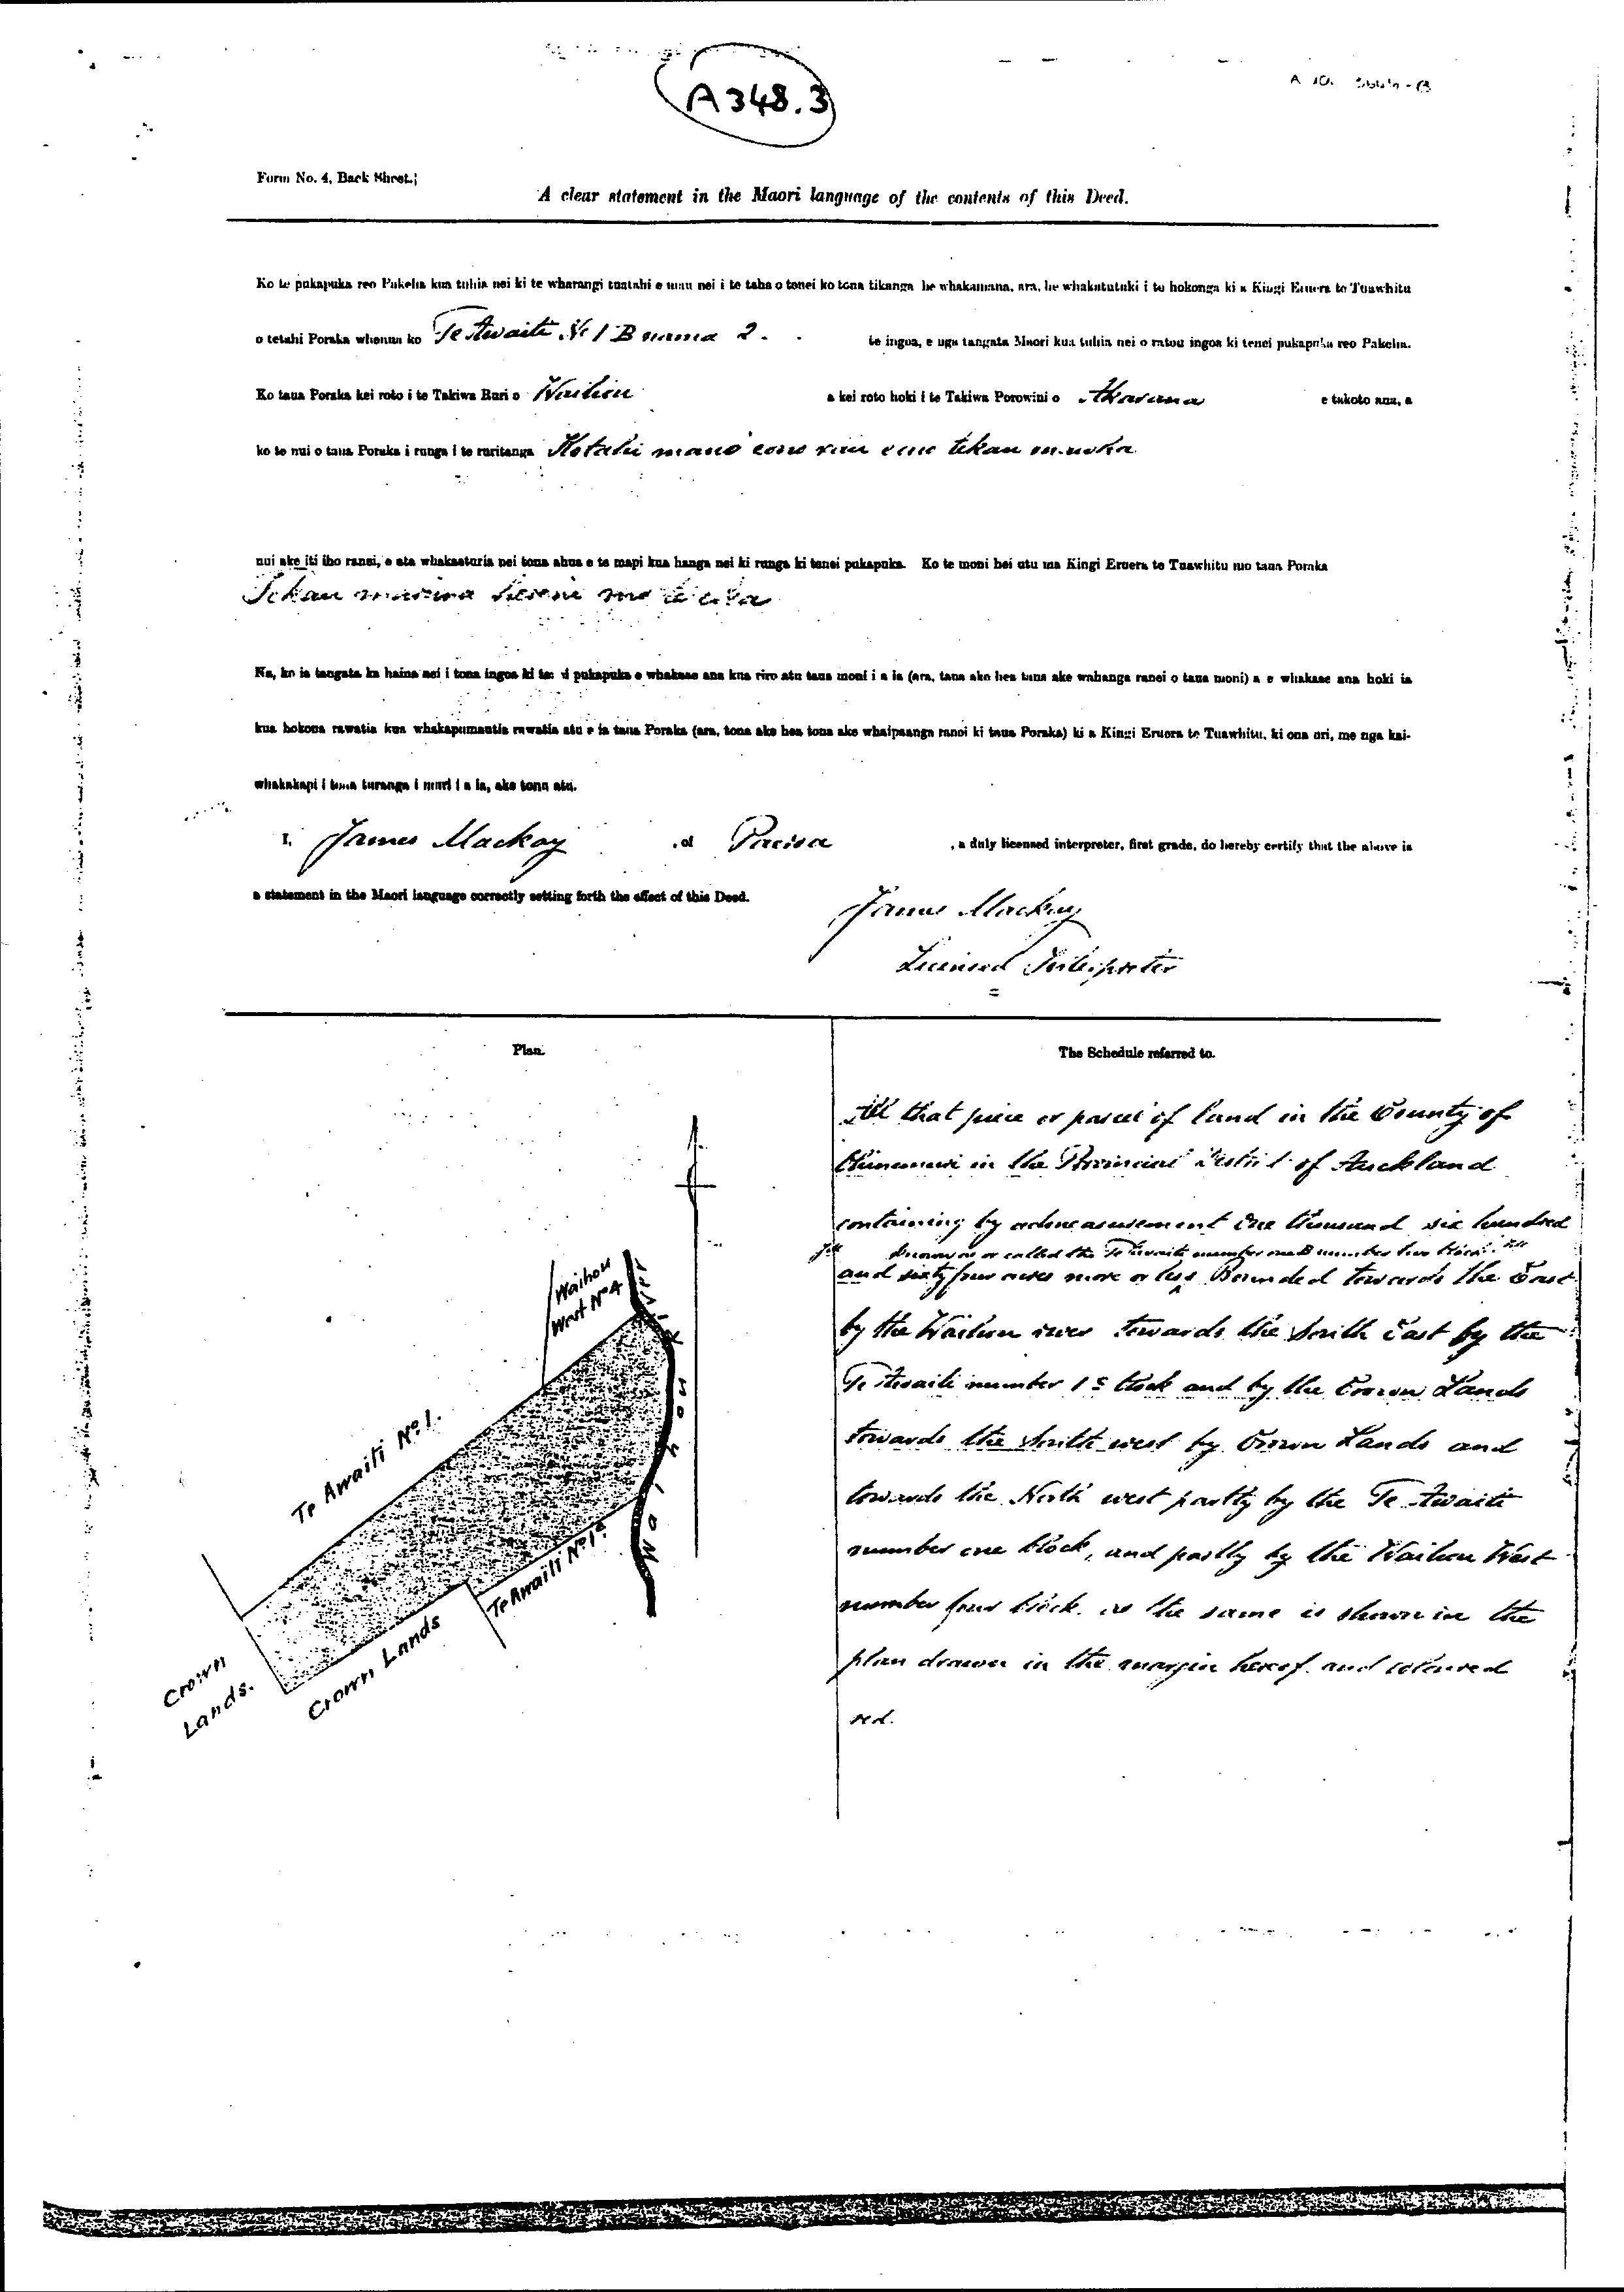 A348.3
Form No. 4, Back Sheet.]
A clear statement in the Maori language of the contents of this Deed.
Ko te pukapuka reo Pakeha kua tuhia nei ki te wharangi tuatahi e mau nei i te taha o tenei ko tona tikanga he whakamana, ara, he whakatutuki i te hokonga ki a Kingi Eruera te Tuawhitu
o tetahi Poraka whenua ko Te Awaiti No 1 B nama 2. te ingoa, e nga tangata Maori kua tuhia nei o ratou ingoa ki tenei pukapuka reo Pakeha.
Ko taua Poraka kei roto i te Takiwa Ruri o Waihou a kei roto hoki i te Takiwa Porowini o Akarana e takoto ana, a
ko te nui o taua Poraka i runga i te ruritanga Kotahi mano ono rau ono tekau mawha
nui ake iti iho ranei, e ata whakaaturia nei tona ahua e te mapi kua hanga nei ki runga ki tenei pukapuka. Ko te moni hei utu ma Kingi Eruera te Tuawhitu mo taua Poraka
Tekau hereni mo te eka
Na, ko ia tangata ka haina nei i tona ingoa ki tenei pukapuka e whakaae ana kua riro atu taua moni i a ia (ara, tana ake hea tana ake wahanga ranei o taua moni) a e whakaae ana hoki ia
kua hokona rawatia kua whakapumautia rawatia atu e ia taua Poraka (ara, tona ake hea tona ake whaipaanga ranei ki taua Poraka) ki a Kingi Eruera te Tuawhitu, ki ona uri, me nga kai-
whakakapi i tona turanga i muri i a ia, ake tonu atu.
I, James Mackay, of Paeroa, a duly licensed interpreter, first grade, do hereby certify that the above is
a statement in the Maori language correctly setting forth the effect of this Deed.
James Mackay
Licensed Interpreter
Plan.
Waihou
West No 4
Te Awaiti No 1.
Te Awaiti No 1c
Crown
Lands.
Crown Lands
The Schedule referred to.
All that piece or parcel of land in the County of
Ohinemuri in the Provincial District of Auckland
containing by admeasurement One thousand six hundred
known as or called the Te Awaiti number one B number two block
and sixty four acres more or less Bounded towards the East
by the Waihou river towards the South East by the
Te Awaiti number 1c block and by the Crown Lands
towards the South west by Crown Lands and
towards the North west partly by the Te Awaiti
number one block, and partly by the Waihou West
number four block. as the same is shown in the
plan drawn in the margin hereof and coloured
red.